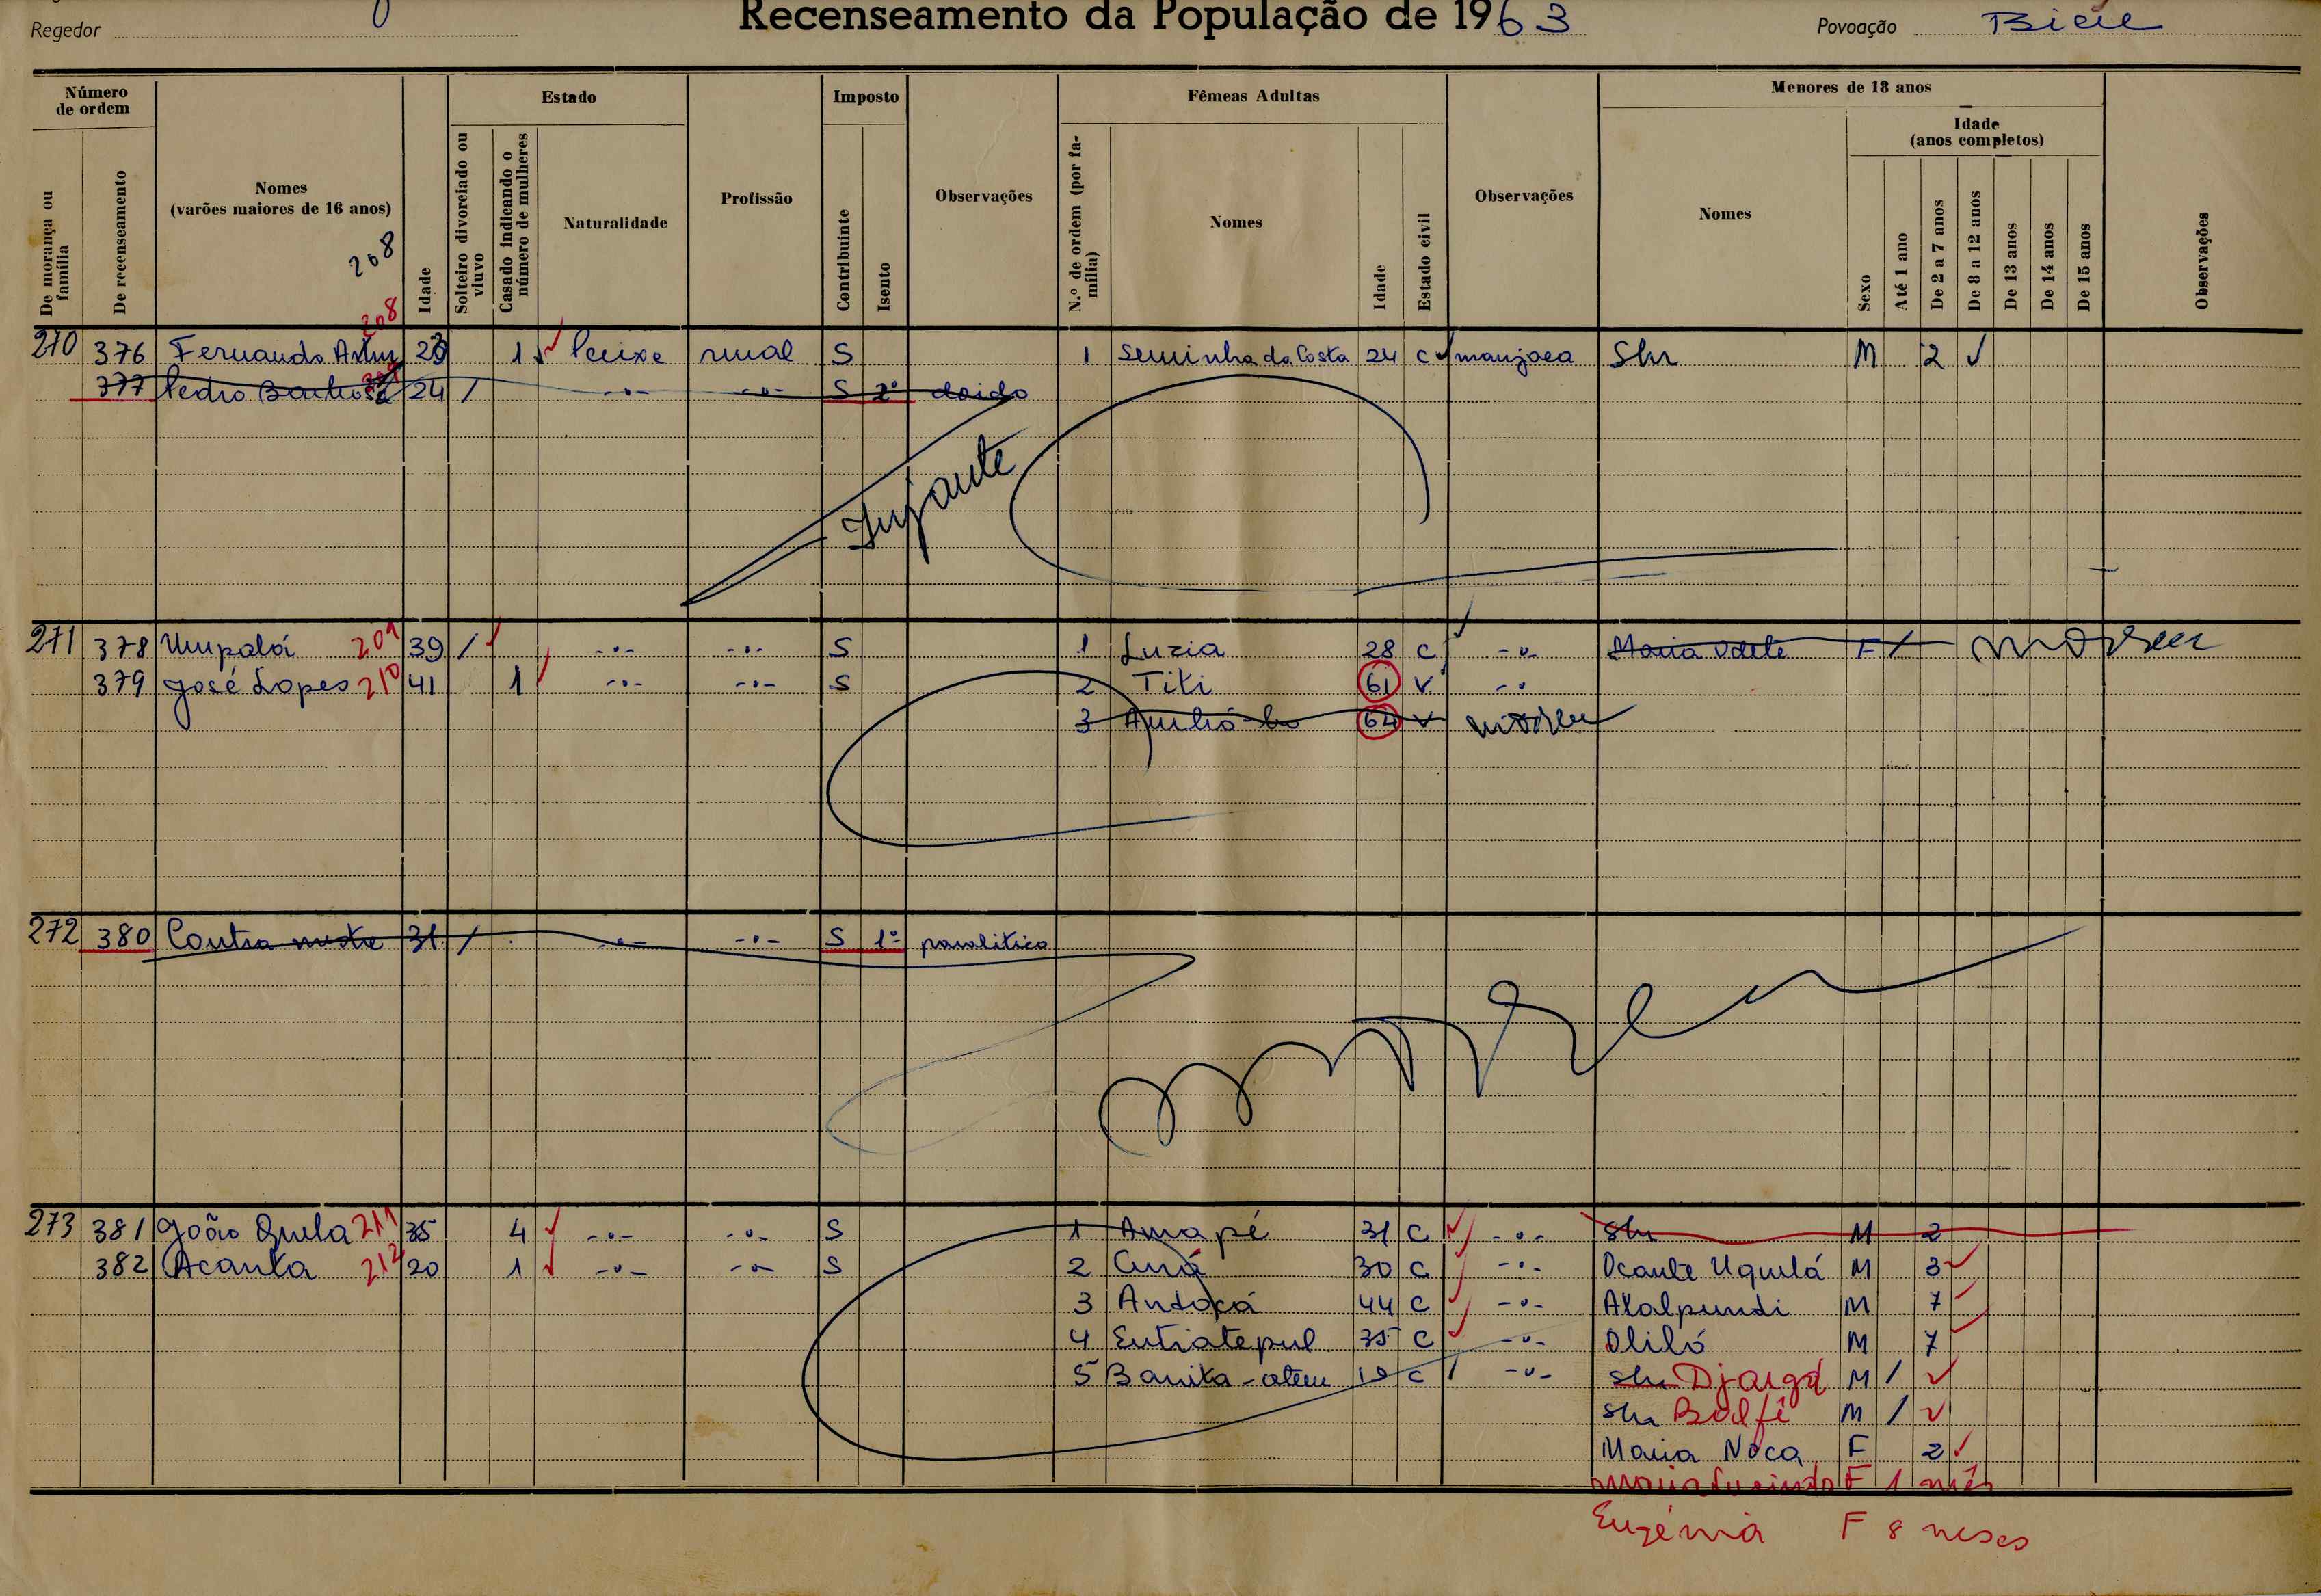 Recenseamento da População de 1963
Regedor
Povoação Biéie
Número de ordem
De morança ou família
De recenseamento
Nomes (varões maiores de 16 anos)
208
208
Idade
Estado
Solteiro divorciado ou viuvo
Casado indicando o número de mulheres
Naturalidade
Profissão
Imposto
Contribuinte
Isento
Observações
Fêmeas Adultas
N.º de ordem (por família)
Nomes
Idade
Estado civil
Observações
Menores de 18 anos
Nomes
Sexo
Idade (anos completos)
Até 1 ano
De 2 a 7 anos
De 8 a 12 anos
De 13 anos
De 14 anos
De 15 anos
Observações
270 376 Fernando Artur 23 1 Peixe rural S 1 Seminha da Costa 24 C manjaca Shr M 2
377 Pedro 24 / -"- -"- S 2º doido
Infante
271 378 Umpalá 209 39 / -"- -"- S 1 Luzia 28 C -"- Maria Odete F / morreu
379 José Lopes 210 41 1 -"- -"- S 2 Titi 61 V -"-
3 64 V morreu
272 380 Contra mestre 31 / -"- -"- S 1º paralitico
morreu
273 381 João Quela 211 35 4 -"- -"- S 1 Amapé 31 C -"- Shr M 2
382 Acanta 212 20 1 -"- -"- S 2 30 C -"- Ocante Uquelá M 3
3 Antoká 44 C -"- Atalpundi M 7
4 Entiatepul 35 C -"- Oliló M 7
5 Banika-atem 19 C -"- shr Djargá M /
Shr Balfê M /
Maria Noca F 2
F 1 mês
Eugénia F 8 meses